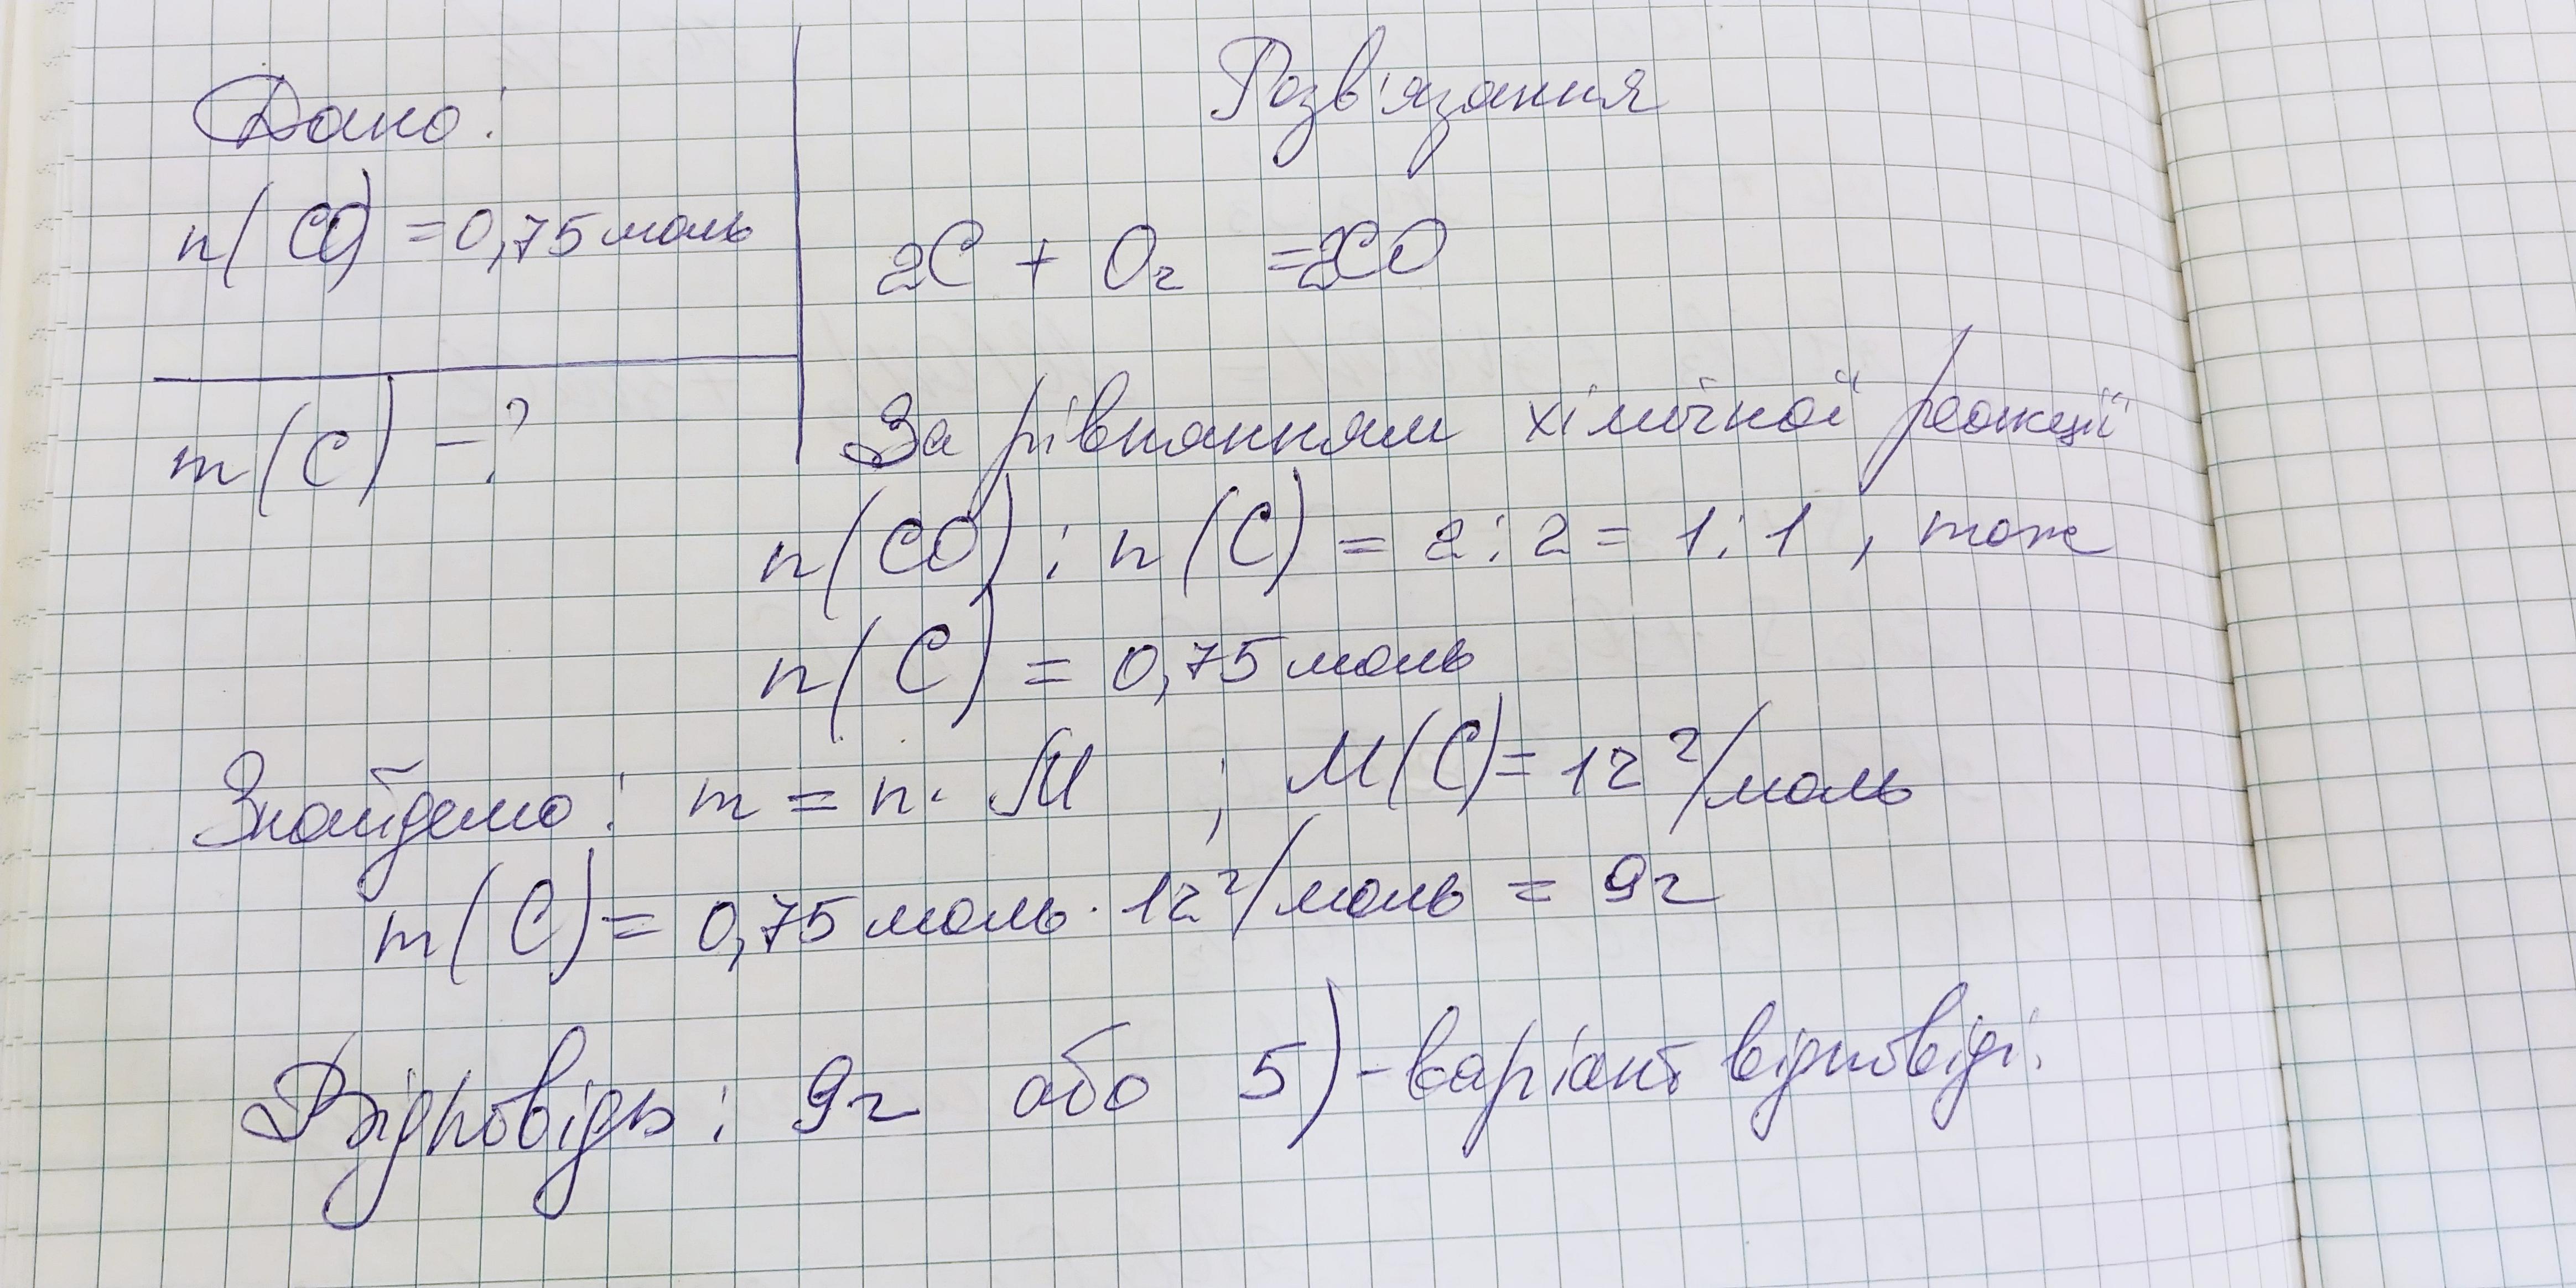 Дано:
n(CO) = 0,75 моль
m(C) - ?
Розв'язання
2C + O₂ = 2CO
За рівнянням хімічної реакції
n(CO) : n(C) = 2 : 2 = 1 : 1 , тоже
n(C) = 0,75 моль
Знайдемо : m = n · M ; M(C) = 12 г/моль
m(C) = 0,75 моль · 12 г/моль = 9г
Відповідь : 9г або 5) - варіант відповіді.